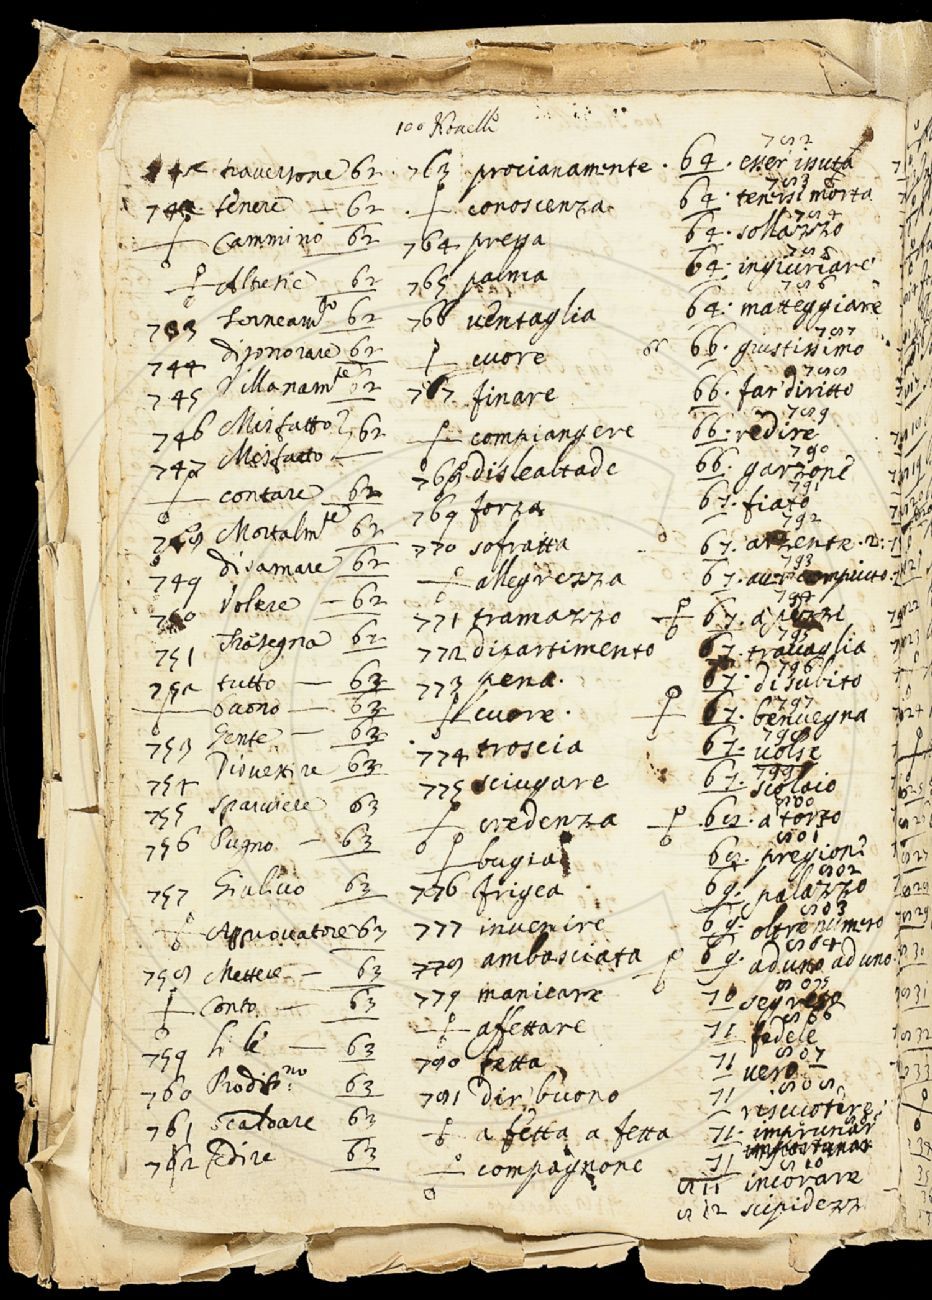 100 Novelle
traversone 62
tenere — 62
Cammino 62
62
Torneam.to 62
744 disonorare 62
745 Villanam.te 62
746 Misfatto 62
747 Misfatto —
contare 62
Mortalm.te 62
749 disamare 62
Volere — 62
751 62
752 tutto — 63
Suono — 63
753 Gente — 63
754 63
755 sparviere 63
756 Pugno — 63
757 Giulivo 63
63
758 Mettere — 63
Conto — 63
759 li le — 63
760 63
761 63
762 63
763 procianamente
conoscenza
764 pressa
765 palma
766 ventaglia
cuore
767 finare
compiangere
768 dislealtade
769 forza
770 sofratta
allegrezza
771 tramazzo
772 dipartimento
773 pena
cuore
774 troscia
775 sciugare
credenza
bugia
776 frigea
777 invenire
778 ambasciata
779 manicare
affettare
780 fetta
781 dir buono
a fetta a fetta
compagnone
782
64. esser issuta
783
64. tenersi morta
784
64. sollazzo
785
64. ingiuriare
786
64. matteggiare
787
66. giustissimo
788
66. far diritto
789
66. redire
790
66. garzone
791
67. fiato
792
67.
793
67.
794
67.
795
67. travaglia
796
67. di subito
797
67. benvegna
798
67. volse
799
67. scolaio
800
68. a torto
801
68. pregione
802
69. palazzo
803
69. oltre numero
804
69. ad uno ad uno
805
70
806
71 fedele
807
71 vero
808
71 riscuotere
71. imprunar
71
810
811 incorare
812